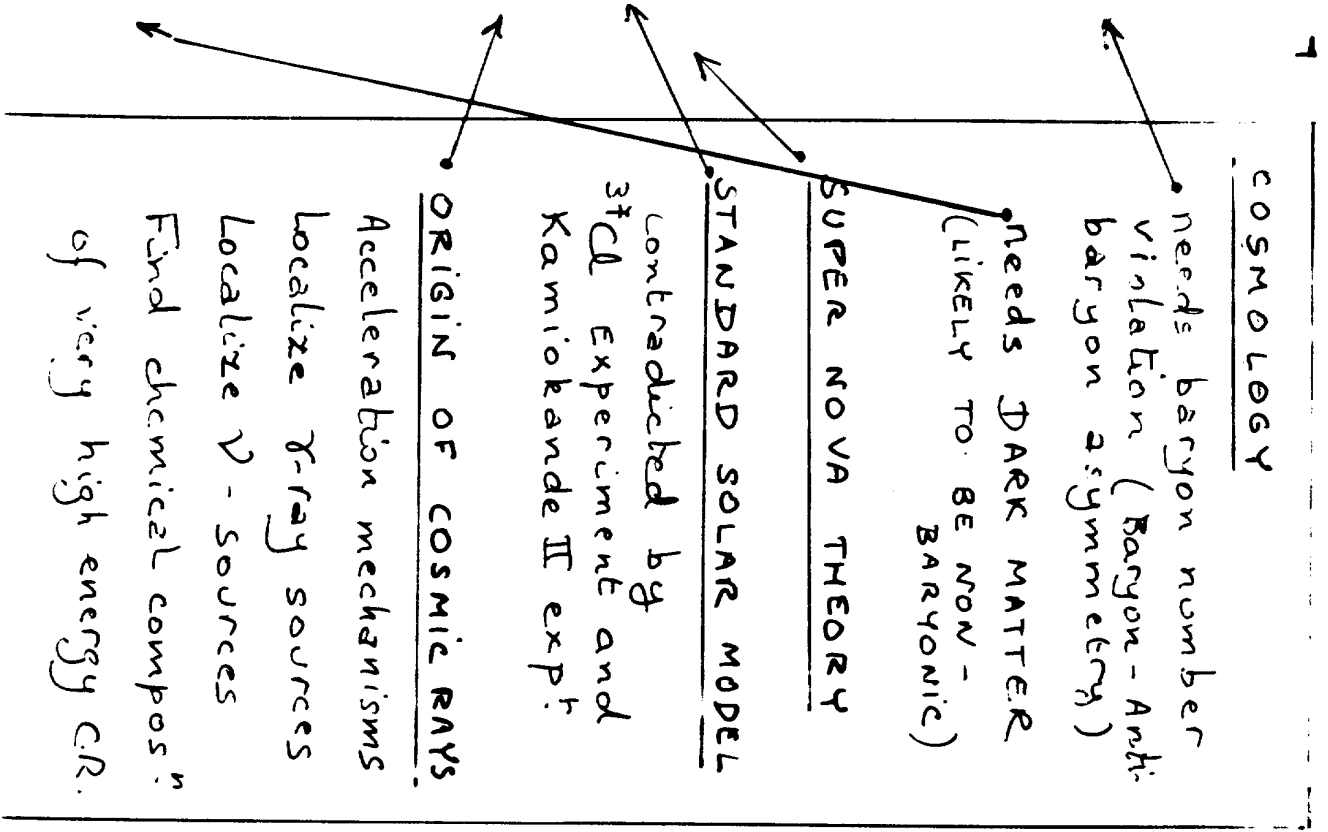 COSMOLOGY
needs baryon number
violation (Baryon-Anti-
baryon asymmetry)
needs DARK MATTER
(LIKELY TO BE NON-
BARYONIC)
SUPER NOVA THEORY
STANDARD SOLAR MODEL
contradicted by
³⁷Cl Experiment and
Kamiokande II expt.
ORIGIN OF COSMIC RAYS
Acceleration mechanisms
Localize γ-ray sources
Localize ν-sources
Find chemical composⁿ.
of very high energy C.R.